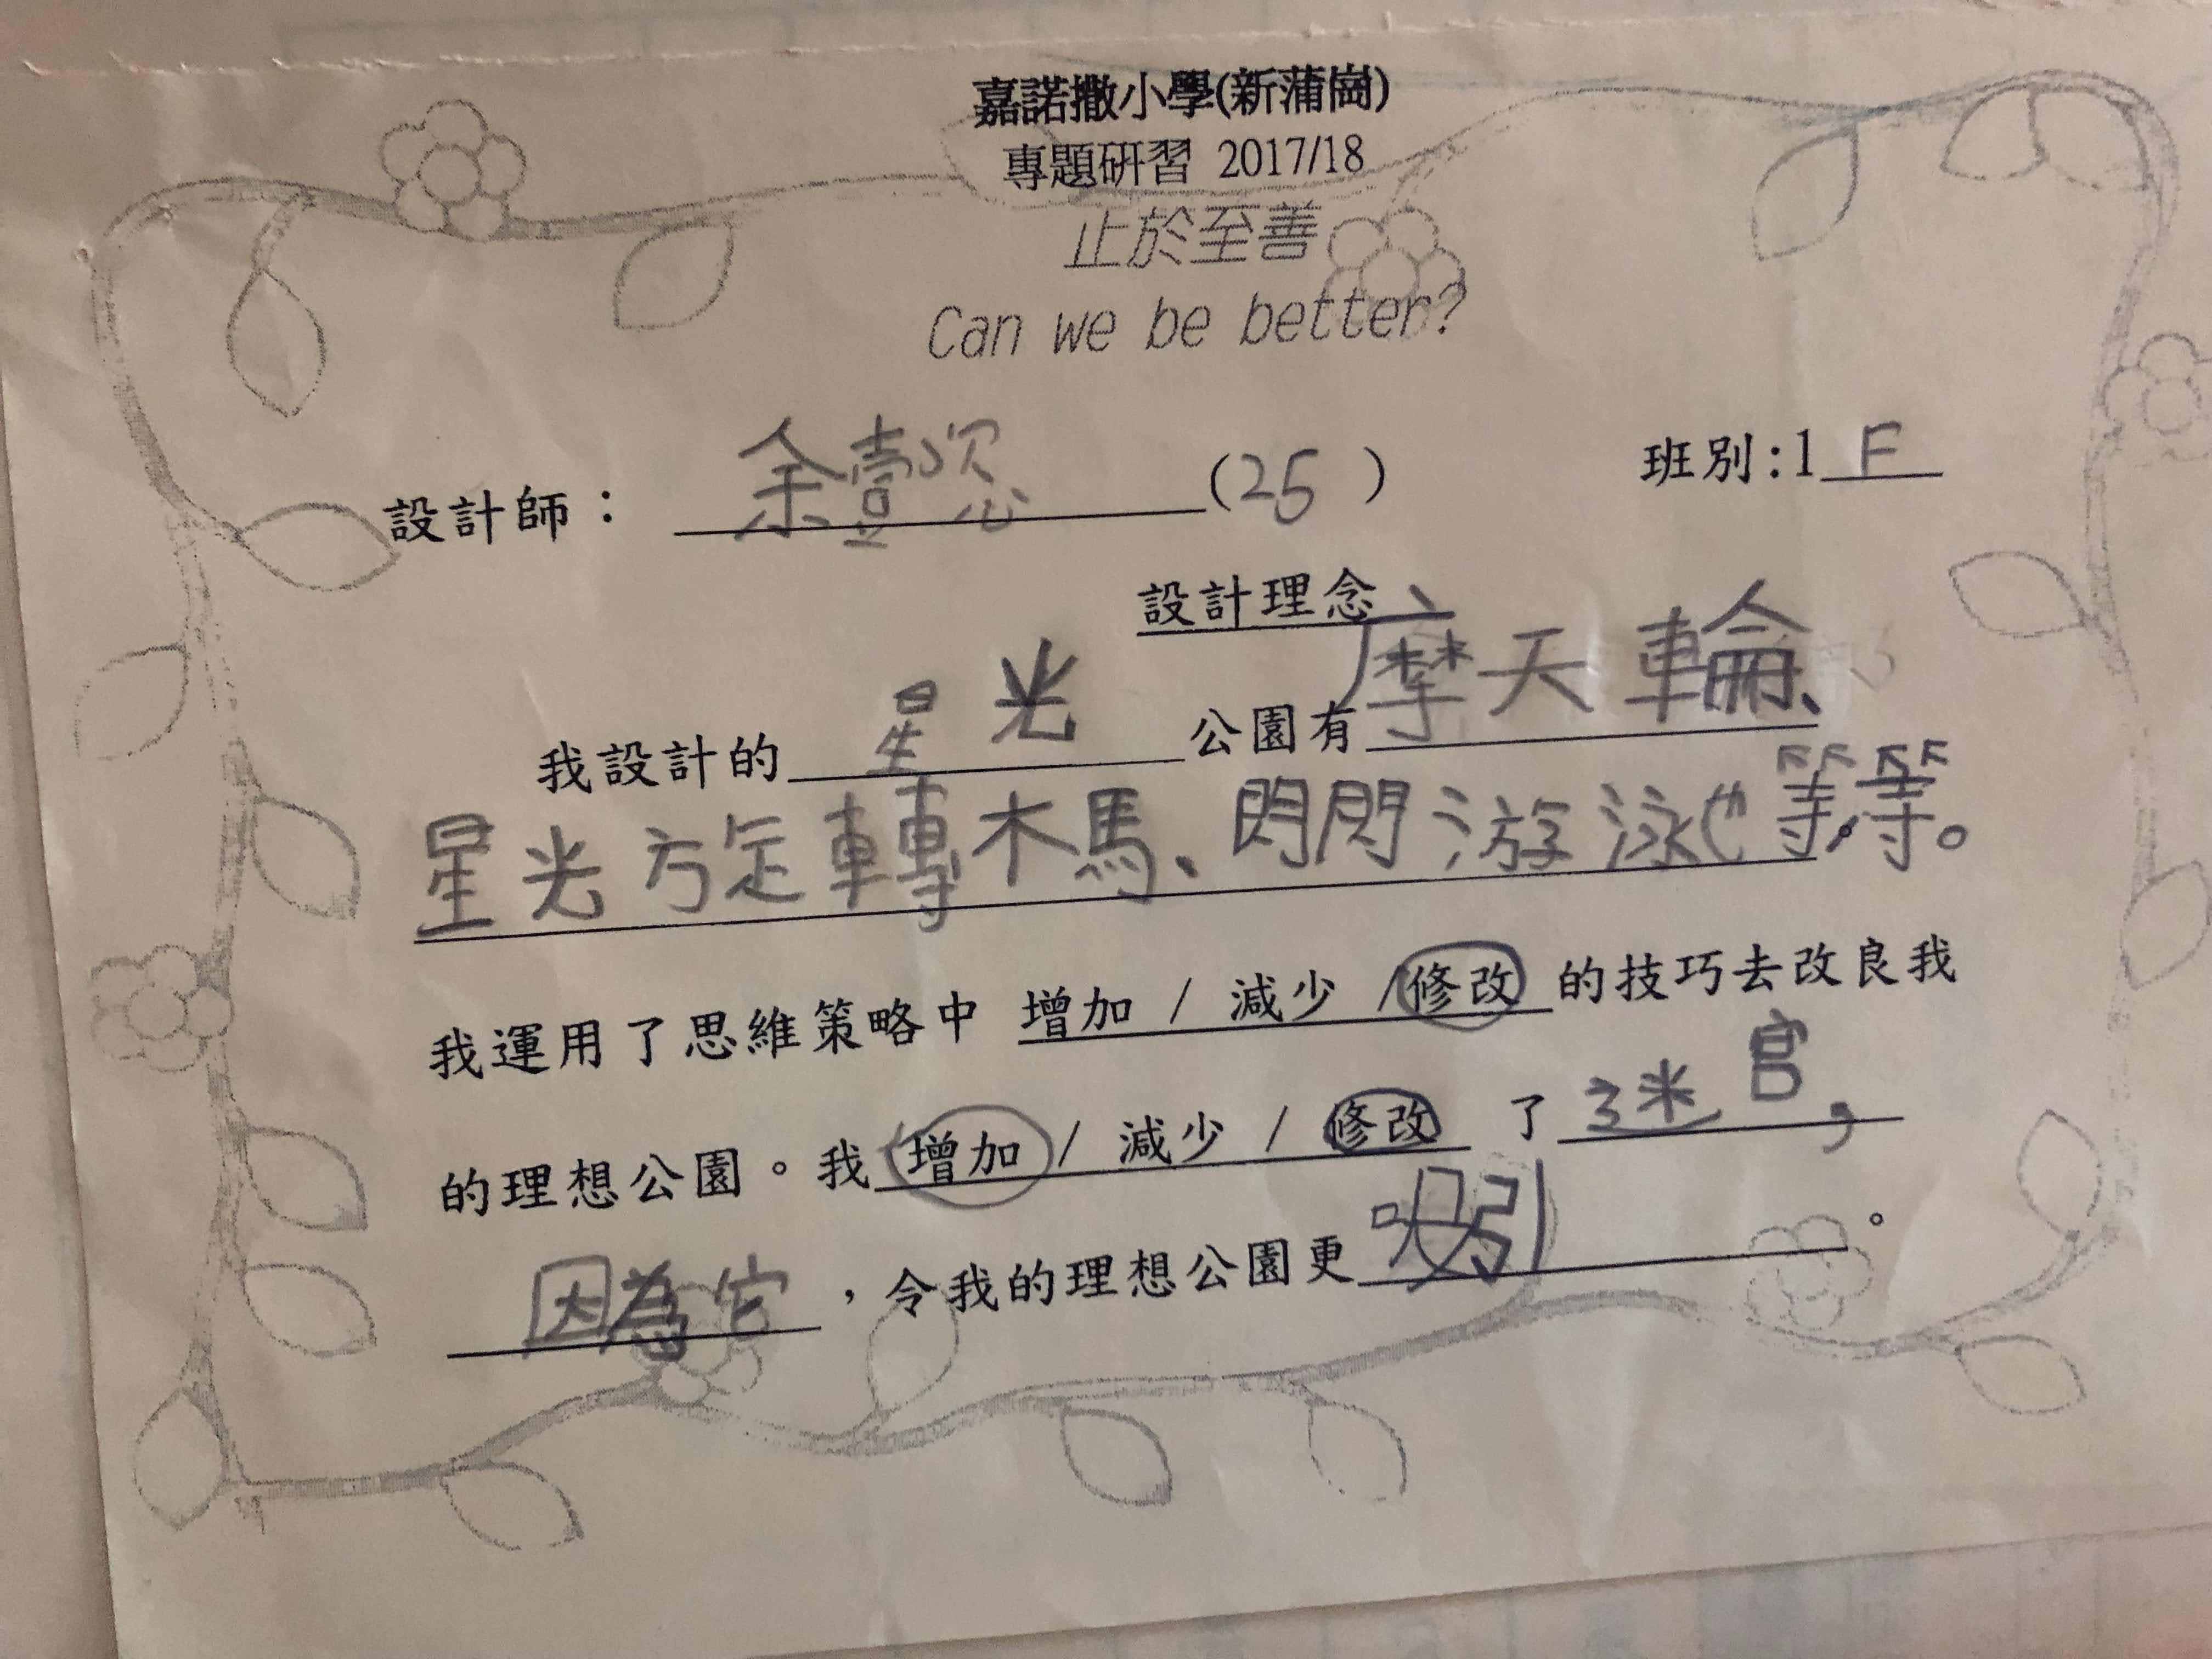 嘉諾撒小學(新蒲崗)
專題研習 2017/18
止於至善
Can we be better?
設計師： 余壹恣 (25) 班別:1 F
設計理念
我設計的 星光 公園有 摩天輪、
星光旋轉木馬、閃閃游泳池等等。
我運用了思維策略中 增加 / 減少 / 修改 的技巧去改良我
的理想公園。我 增加 / 減少 / 修改 了 迷宮，
因為它 ，令我的理想公園更 吸引 。